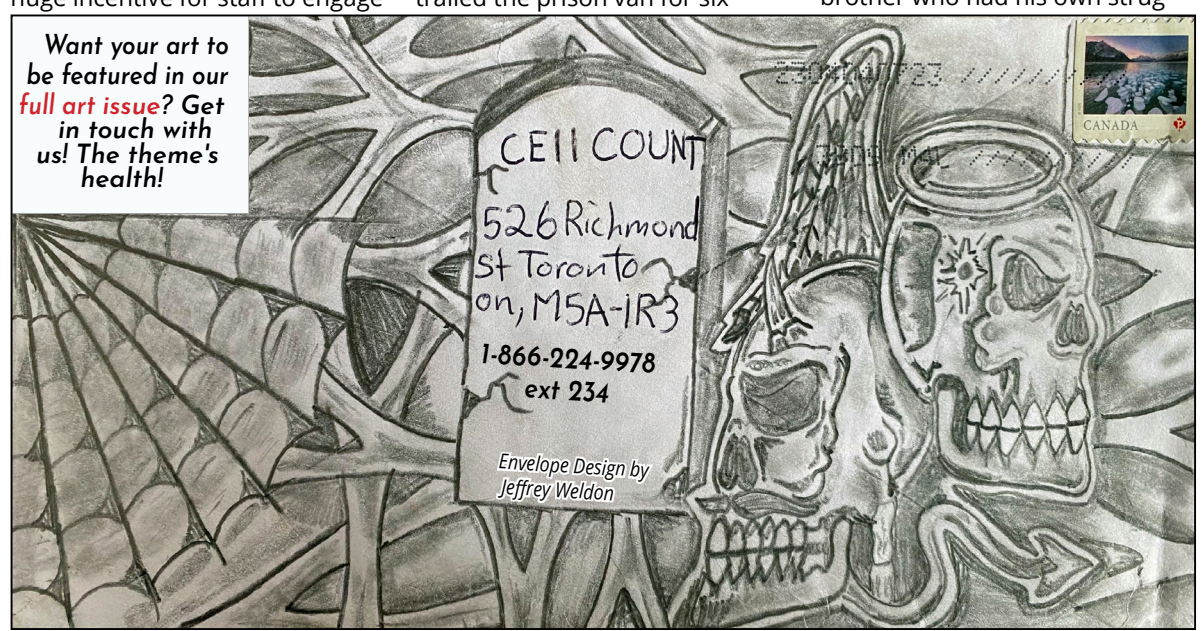 huge incentive for staff to engage
trailed the prison van for six
brother who had his own strug
Want your art to
be featured in our
full art issue? Get
in touch with
us! The theme's
health!
CEll COUNT
526 Richmond
st Toronto
on, M5A-1R3
1-866-224-9978
ext 234
Envelope Design by
Jeffrey Weldon
CANADA
P